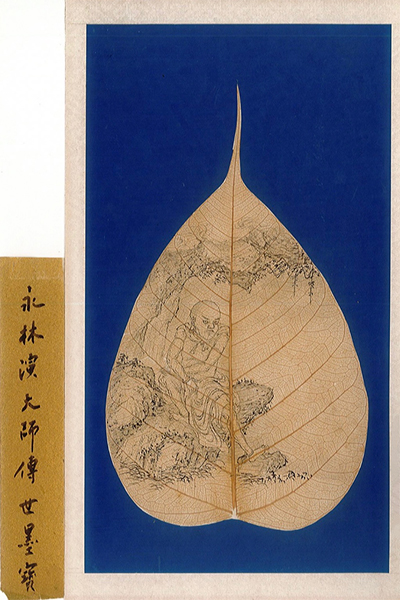 永林演大師傳世墨寶